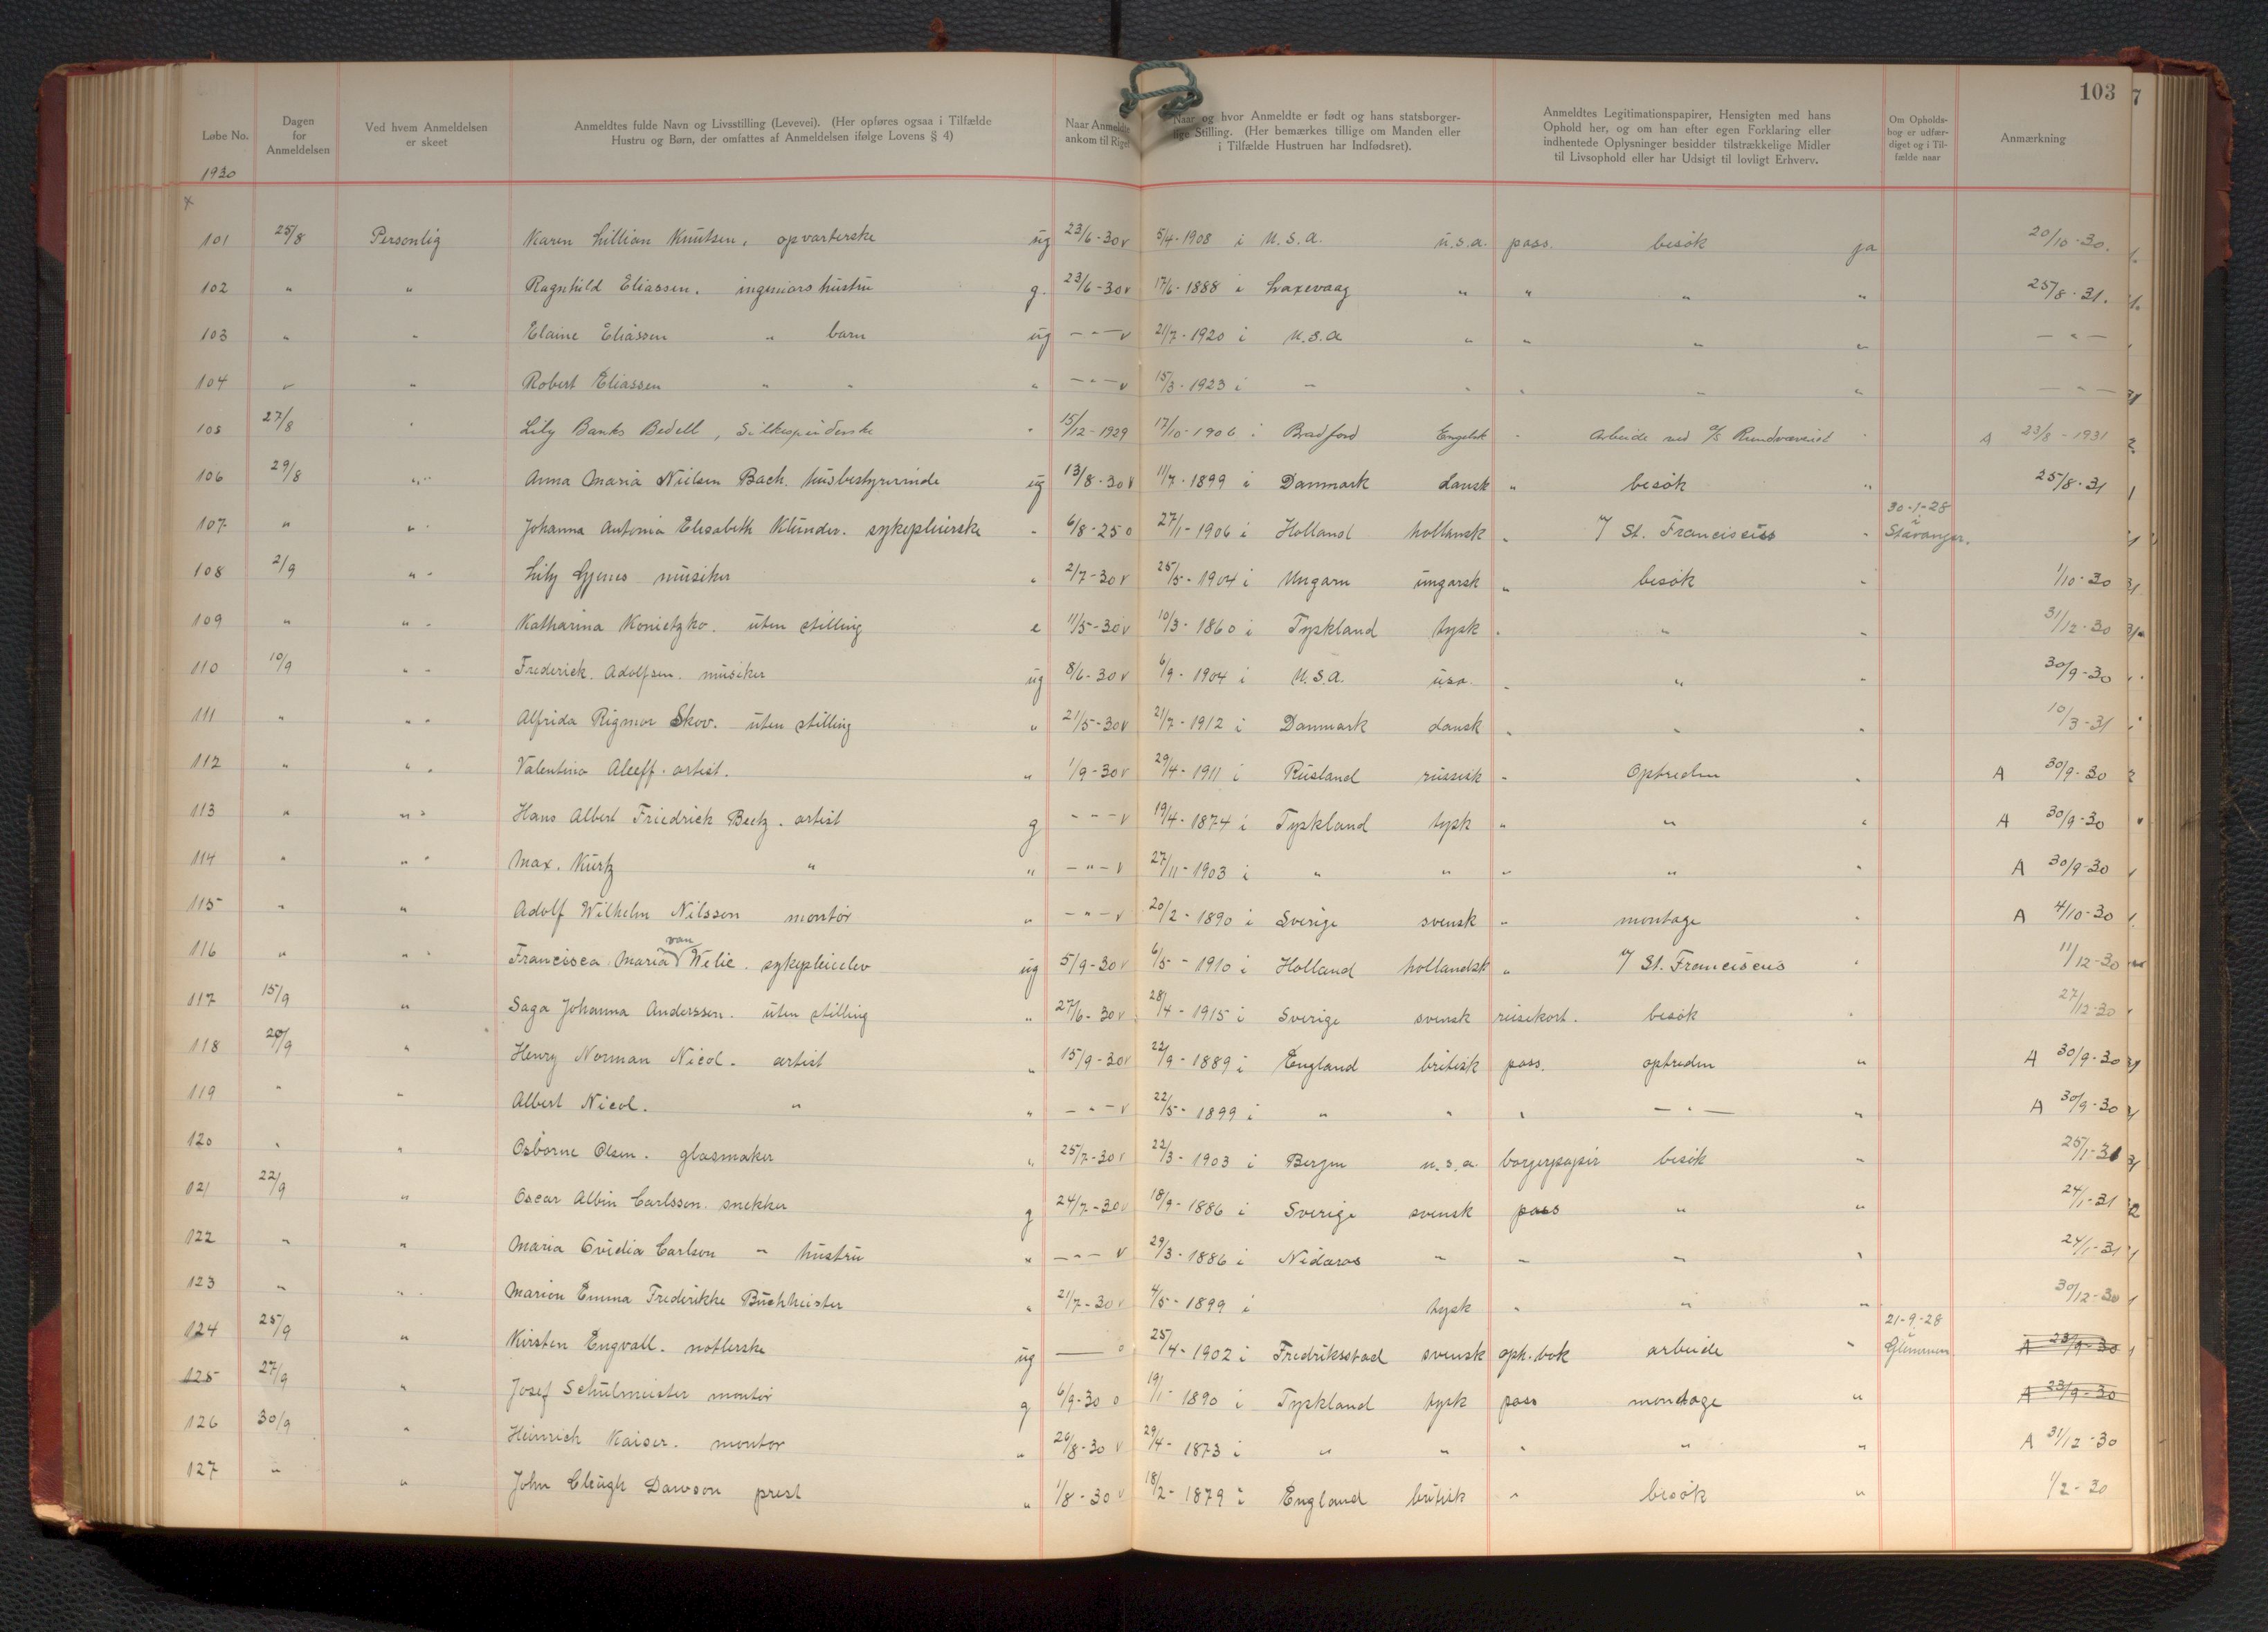 103
Løbe No.
Dagen for Anmeldelsen
Ved hvem Anmeldelsen er skeet
Anmeldtes fulde Navn og Livsstilling (Levevei). (Her opføres ogsaa i Tilfælde Hustru og Børn, der omfattes af Anmeldelsen ifølge Lovens § 4)
Naar Anmeldte ankom til Riget
Naar og hvor Anmeldte er født og hans statsborgerlige Stilling. (Her bemærkes tillige om Manden eller i Tilfælde Hustruen har Indfødsret).
Anmeldtes Legitimationspapirer, Hensigten med hans Ophold her, og om han efter egen Forklaring eller indhentede Oplysninger besidder tilstrækkelige Midler til Livsophold eller har Udsigt til lovligt Erhverv.
Om Opholdsbog er udfærdiget og i Tilfælde naar
Anmærkning
1930
101 25/8 Personlig Karen Lillian Knutsen, opvarterske ug 23/6-30 v 5/4-1908 i U.S.A. u.s.a. pass. besök ja 20/10-30.
102 " " Ragnhild Eliassen. ingeniørs hustru g. 23/6-30 v 17/6-1888 i Laxevaag " " " " 25/8-31.
103 " " Elaine Eliassen " barn ug - " - v 21/7-1920 i U.S.A " " " " - " -
104 " " Robert Eliassen " " " - " - v 15/3-1923 i " " " " " - " -
105 27/8 " Lily Banks Bedell, Silkespinderske " 15/12-1929 17/10-1906 i Bradford Engelsk " Arbeide ved a/s Rundvæveriet " A 23/8-1931
106 29/8 " Anna Maria Nielsen Bach. husbestyrerinde ug 13/8-30 v 11/7-1899 i Danmark dansk " besök " 25/8-31
107 " " Johanna Antonia Elisabeth Klunder. sykepleierske " 6/8-25 o 27/1-1906 i Holland hollansk " v/ St. Franciscus " 30-1-28 i Stavanger.
108 2/9 " Lily Gjenes musiker " 2/7-30 v 25/5-1904 i Ungarn ungarsk " besök " 1/10-30
109 " " Katharina Konietzko. uten stilling e 11/5-30 v 10/3-1860 i Tyskland tysk " " " 31/12-30
110 10/9 " Frederick. Adolfsen. musiker ug 8/6-30 v 6/9-1904 i U.S.A. usa. " " " 30/9-30
111 " " Alfrida Rigmor Skov. uten stilling " 21/5-30 v 21/7-1912 i Danmark dansk " " " 10/3-31
112 " " Valentino Aleeff. artist. " 1/9-30 v 29/4-1911 i Rusland russisk " Optreden " A 30/9-30
113 " " Hans Albert Friedrick Beetz. artist g - " - v 19/4-1874 i Tyskland tysk " " " A 30/9-30
114 " " Max. Kurtz " " - " - v 27/11-1903 i " " " " " A 30/9-30
115 " " Adolf Wilhelm Nilsson montör " - " - v 20/2-1890 i Sverige svensk " montage " A 4/10-30
116 " " Francisca Maria van Welie. sykepleieelev ug 5/9-30 v 6/5-1910 i Holland hollandsk " v/ St. Franciscus " 11/12-30
117 15/9 " Saga Johanna Anderssen. uten stilling " 27/6-30 v 28/4-1915 i Sverige svensk reisekort. besök " 27/12-30
118 20/9 " Henry Norman Nicol. artist " 15/9-30 v 22/9-1889 i England britisk pass. optreden " A 30/9-30
119 " " Albert Nicol. " " - " - v 22/5-1899 i " " " - " - " A 30/9-30
120 " " Osborne Olsen. glasmaker " 25/7-30 v 22/3-1903 i Bergen u.s.a. borgerpapir besök " 25/1-31
121 22/9 " Oscar Albin Carlsson. snekker g 24/7-30 v 18/9-1886 i Sverige svensk pass " " 24/1-31
122 " " Maria Ovidia Carlson " hustru " - " - v 29/3-1886 i Nidaros " " " " 24/1-31
123 " " Marien Emma Frederikke Buchheister " 21/7-30 v 4/5-1899 i tysk " " " 30/12-30
124 25/9 " Kirsten Engvall. notlerske ug — o 25/4-1902 i Fredriksstad svensk oph. bok arbeide " 21-9-28 i Glemmen A 23/9-30
125 27/9 " Josef Schulmeister montör g 6/9-30 o 19/1-1890 i Tyskland tysk pass montage " A 23/9-30
126 30/9 " Heinrich Kaiser. montör " 26/8-30 v 29/4-1873 i " " " " " A 31/12-30
127 " " John Cleugh Dawson prest " 1/8-30 v 18/2-1879 i England britisk " besök " 1/2-30